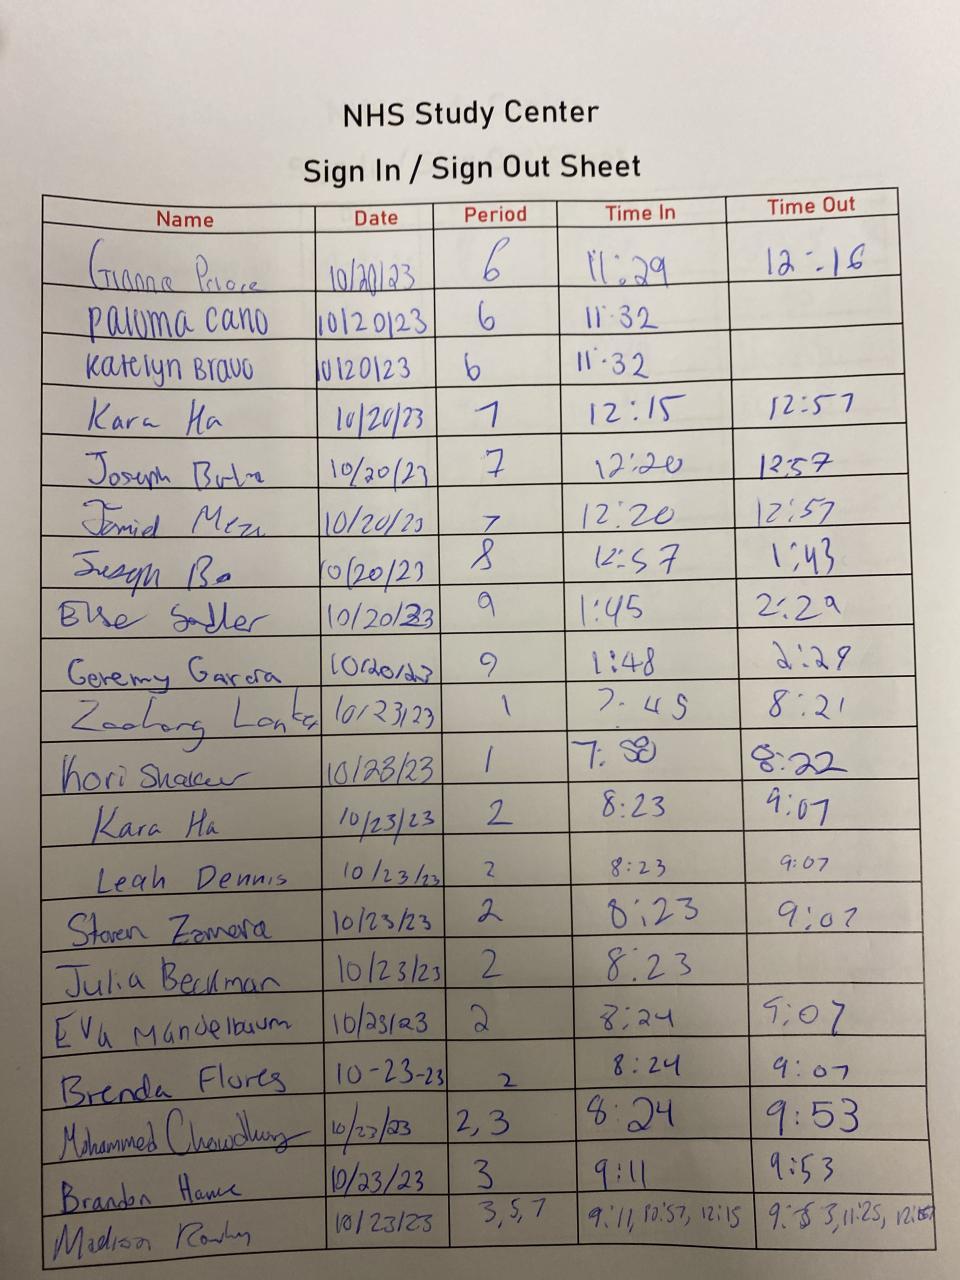 NHS Study Center
Sign In / Sign Out Sheet
Name Date Period Time In Time Out
Gianna Priore 10/20/23 6 11:29 12:16
paloma cano 10/20/23 6 11:32
Katelyn Bravo 10/20/23 6 11:32
Kara Ha 10/20/23 7 12:15 12:57
Joseph 10/20/23 7 12:20 12:57
10/20/23 7 12:20 12:57
Joseph 10/20/23 8 12:57 1:43
Elise Sadler 10/20/23 9 1:45 2:29
Geremy Garcia 10/20/23 9 1:48 2:29
10/23/23 1 7:45 8:21
Kori 10/23/23 1 7:50 8:22
Kara Ha 10/23/23 2 8:23 9:07
Leah Dennis 10/23/23 2 8:23 9:07
Steven Zamora 10/23/23 2 8:23 9:07
Julia Beckman 10/23/23 2 8:23
Eva Mandelbaum 10/23/23 2 8:24 9:07
Brenda Flores 10-23-23 2 8:24 9:07
Mohammed Chowdhury 10/23/23 2,3 8:24 9:53
Brandon 10/23/23 3 9:11 9:53
Madison 10/23/23 3,5,7 9:11, 10:57, 12:15 9:53, 11:25,